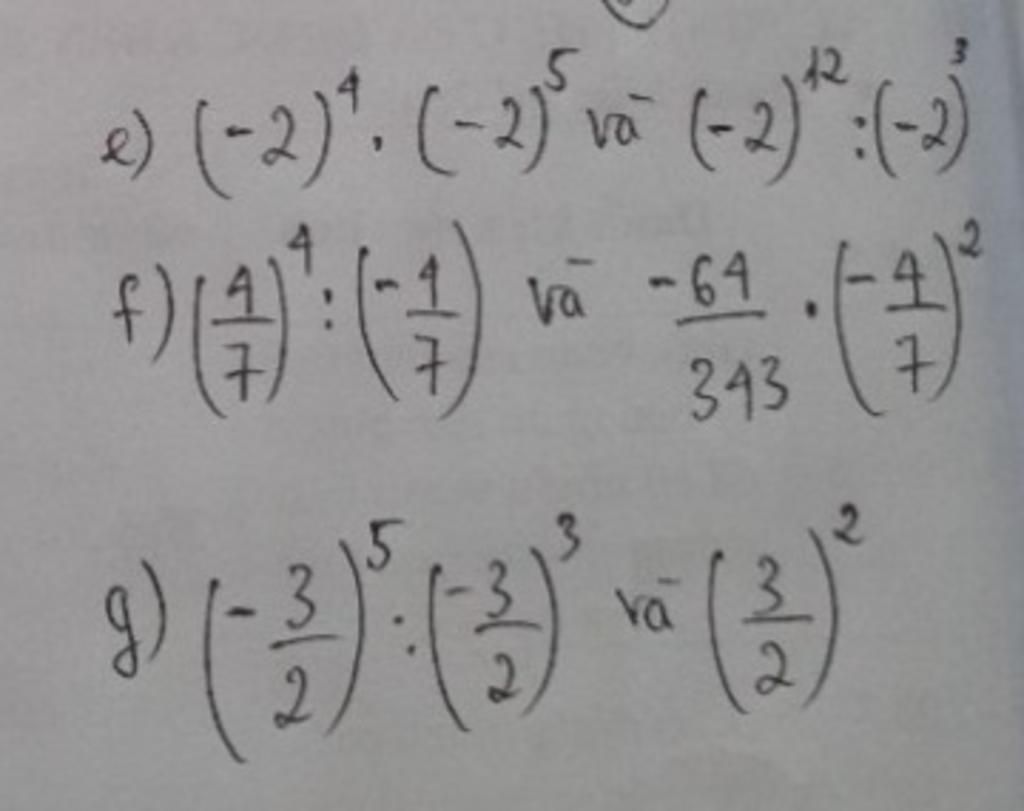 e) (-2)^4 . (-2)^5 và (-2)^12 : (-2)^3
f) (4/7)^4 : (-4/7) và -64/343 . (-4/7)^2
g) (-3/2)^5 : (-3/2)^3 và (3/2)^2